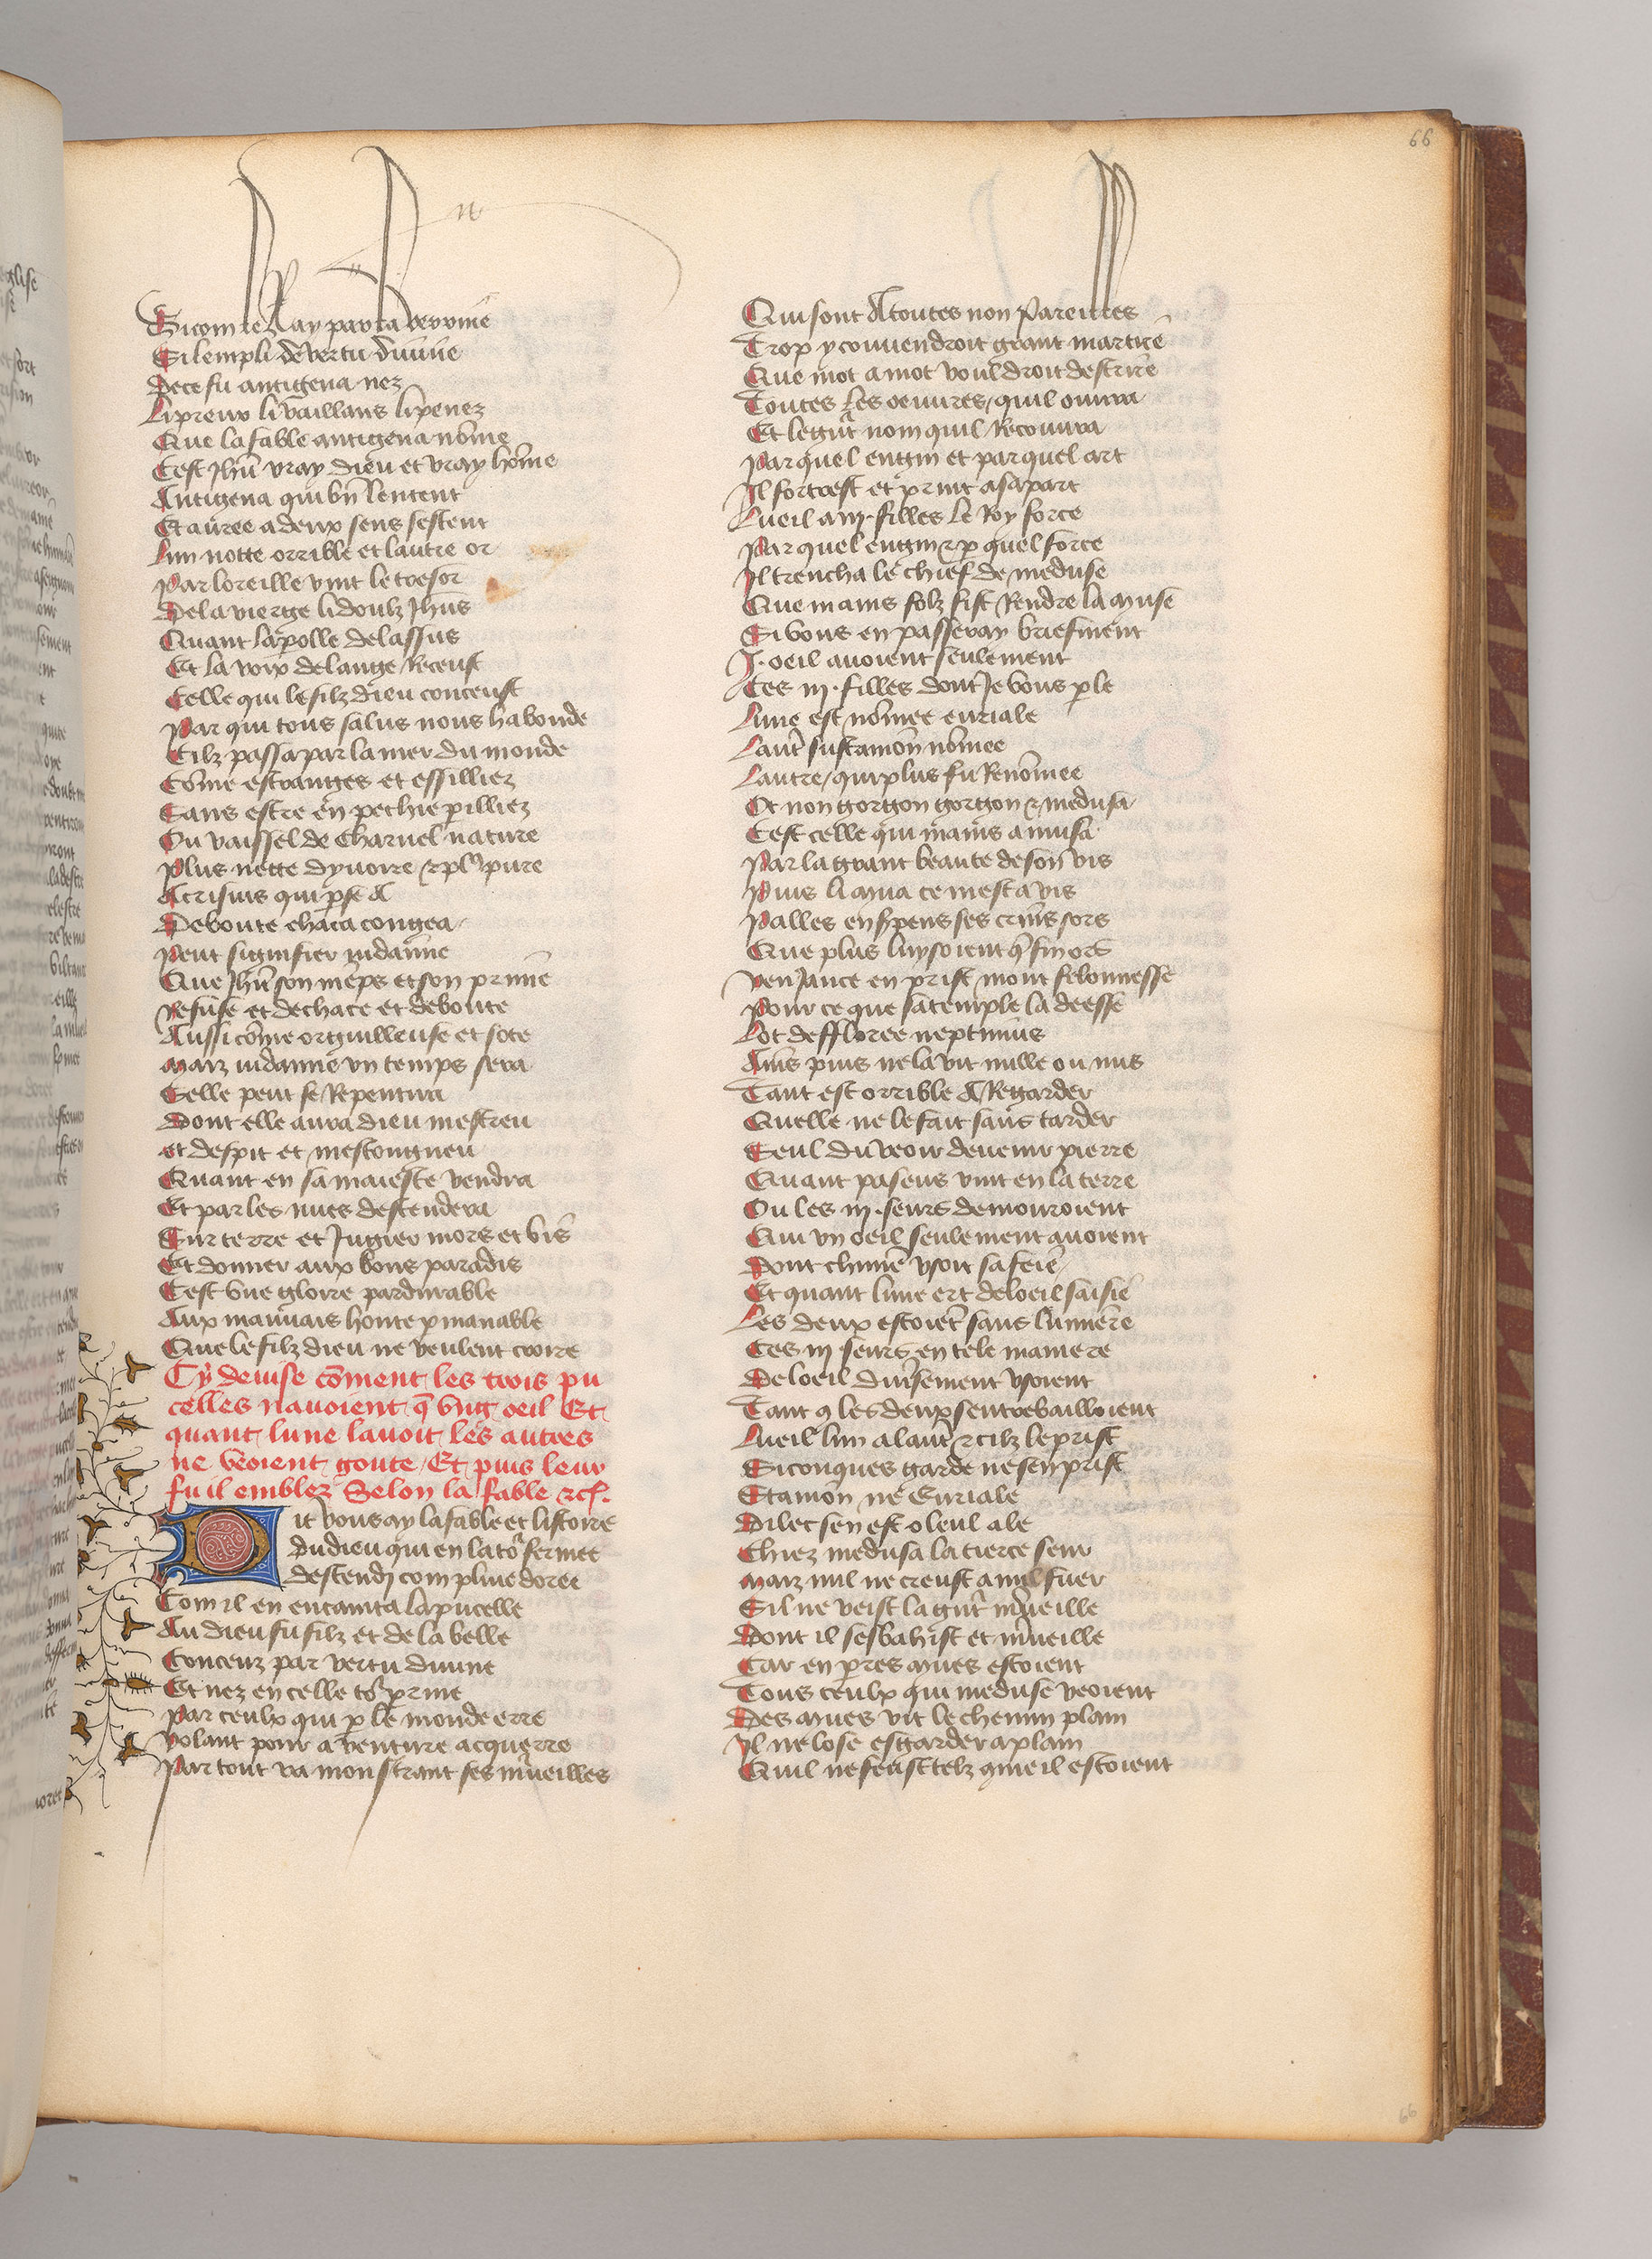 66
Si com ie Ay par ca derrine
Si lempli de vertu diuine
De ce fu antigena nez
Li preux li vaillans li penez
Que la fable antigena nōme
Cest Jhū vray dieu et vray hōme
Antigena qui bn̄ lentent
Et auree a deux sens sestent
Lun notte orrible et lautre or
Par loreille vint le tresor
De la vierge li doulz Jhūs
Quant la polle de lassus
Et la voix de lange Receust
Celle qui le filz dieu conceust
Par qui tous salus nous habonde
Cilz passa par la mer du monde
Cōme estranges et essilliez
Sans estre en pechie perilliez
Ou vaissel de Charnel nature
Plus nette dyuoire & plꝰ pure
Acrisius qui pse A
Deboute chaca congea
Peut signifier iudaime
Que Jhū son meps et son prime
Refuse et dechace et deboute
Aussi cōme orguilleuse et sote
Maiz iudaime vn temps sera
Celle peut se Repentira
Dont elle aura dieu mescreu
et despit et mescongneu
Quant en sa maieste vendra
Et par les nues descendera
Sur terre et Jugier mors et vis
Et donner aux bons paradis
Cest vne gloire pardurable
Aux mauuais honte pmanable
Que le filz dieu ne veulent croire
Cy deuise cōment les trois pu
celles nauoient q̄ vng oeil Et
quant lune lauoit les autres
ne veoient goute Et puis leur
fu il emblez Selon la fable &c.
Dit vous ay la fable et listoire
du dieu qui en la to' fermee
descendi com pluie doree
Com il en encainta la pucelle
Au dieu fu filz et de la belle
Conceuz par vertu diuine
Et nez en celle to' prine
Par ceulx qui p le monde erre
Volant pour auenture acquerre
Par tout va monstrant ses m̄ueilles
Qui sont A toutes non Pareilles
Trop y conuendroit grant martire
Que mot a mot vouldroit descrire
Toutes Les oeuures quil ouura
Et le grāt nom quil Recouura
Par quel engin et par quel art
Il fortrest et print a sa part
Lueil a iij. filles le Roy force
Par quel engin & p quel force
Il trencha le chief de meduse
Que mains folz fist Rendre la muse
Si vous en passeray briefment
J. oeil auoient seulement
Ces iij. filles dont Je vous ple
Lune est nōmee euriale
Laut' sustamon nōmee
Lautre qui plus fu Renōmee
Ot non gorgon gorgon & medusa
Cest celle qui mains amusa
Par la grant beaute de son vis
Puis li mua ce mest a vis
Palles en spens ses crins sors
Que plus luysoient q̄ fin ors
Venjance en prist mont felonnesse
Pour ce que sa temple la deesse
Lot defflore neptunus
Ains puis ne la vit nulle ou nus
Tant est orrible A Regarder
Quelle ne le fait sans tarder
Seul du veoir deuenir pierre
Quant paseus vint en la terre
Ou les iij. seurs demouroient
Qui vn oeil seulement auoient
Dont chūne vsoit sa feie
Et quant lune ert de loeil saisie
Les deux estoiēt sans lumiere
Ces iij seurs en tele maniere
De loeil diuisement vsoient
Tant q les deux sentrebailloient
Lueil lun a laut' & cilz le prist
Si conques garde ne sen prist
Stamon ne Euriale
Dilec sen est o leul ale
Chiez medusa la tierce seur
Maiz nul ne creust a nul fuer
Sil ne veist la grāt m̄ueille
Dont il sesbahist et m̄ueille
Car en pres mues estoient
Tous ceulx qui meduse veoient
Des mues vit le chemin plain
Il ne lose esgarder a plain
Quil ne feust telz que il estoient
66